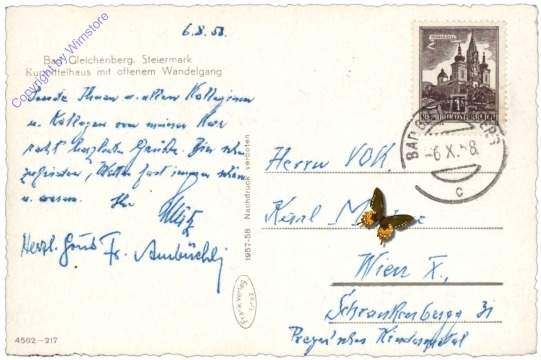 6.X.58.
Bad Gleichenberg, Steiermark
Kurmittelhaus mit offenem Wandelgang
Copyright by Wimstore
Sende Ihnen u. allen Kolleginnen
u. Kollegen von meiner Kur
recht herzliche Grüße. Bin sehr
zufrieden, Wetter fast immer schön
u. warm. Ihr
Herzl. Gruß Fr.
1957-58 Nachdruck verboten
Frank Verlag Graz
4562-217
REPUBLIK ÖSTERREICH
BAD GL
-6.X. 8.
C
Herrn VOK
Karl
Wien X.,
Schrankenberggasse 31
Preyer'sches Kinderspital